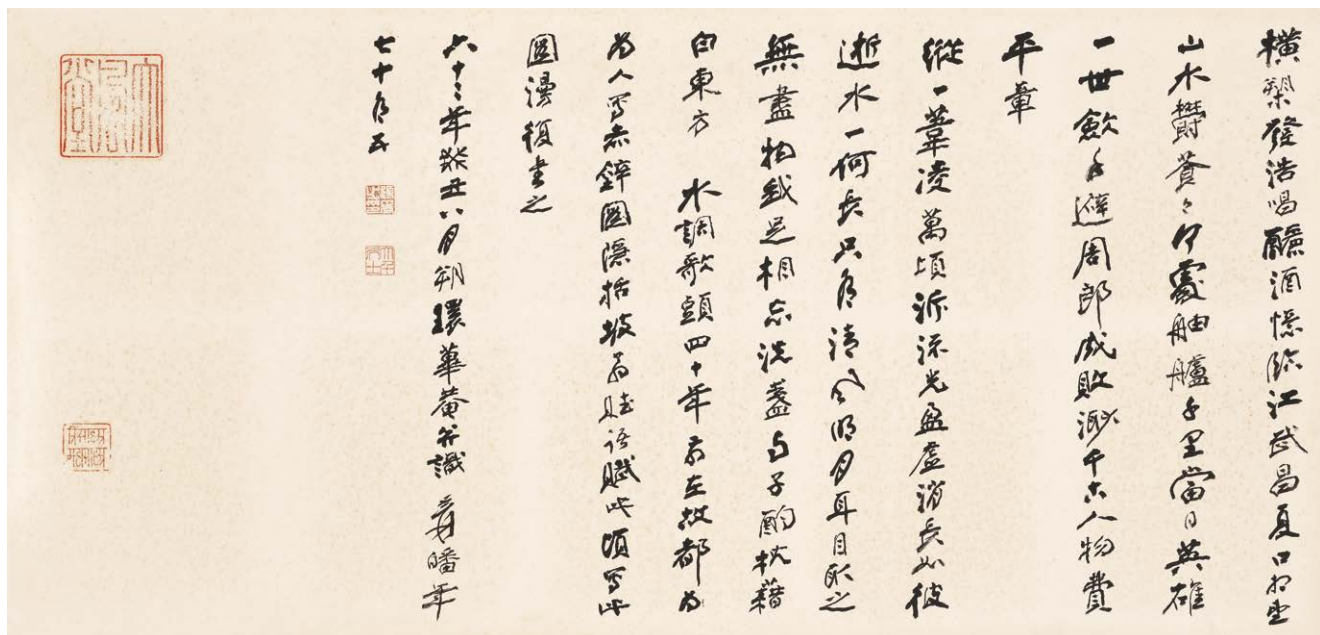 橫槊發浩唱釃酒憶臨江武昌夏口相望
山水鬱蒼々何處舳艫千里當日英雄
一世歛手避周郎成敗渺千古人物費
平章
縱一葦凌萬頃泝流光盈虛消長如彼
逝水一何長只有清風明月耳目取之
無盡物我足相忘洗盞與子酌枕藉
白東方 水調歌頭四十年前在故都為
為人寫赤壁圖隱括坡翁賦語賦此頃寫此
圖漫復書之
六十二年癸丑八月朔環蓽菴并識 爰皤年
七十有五
大千居士
大風堂